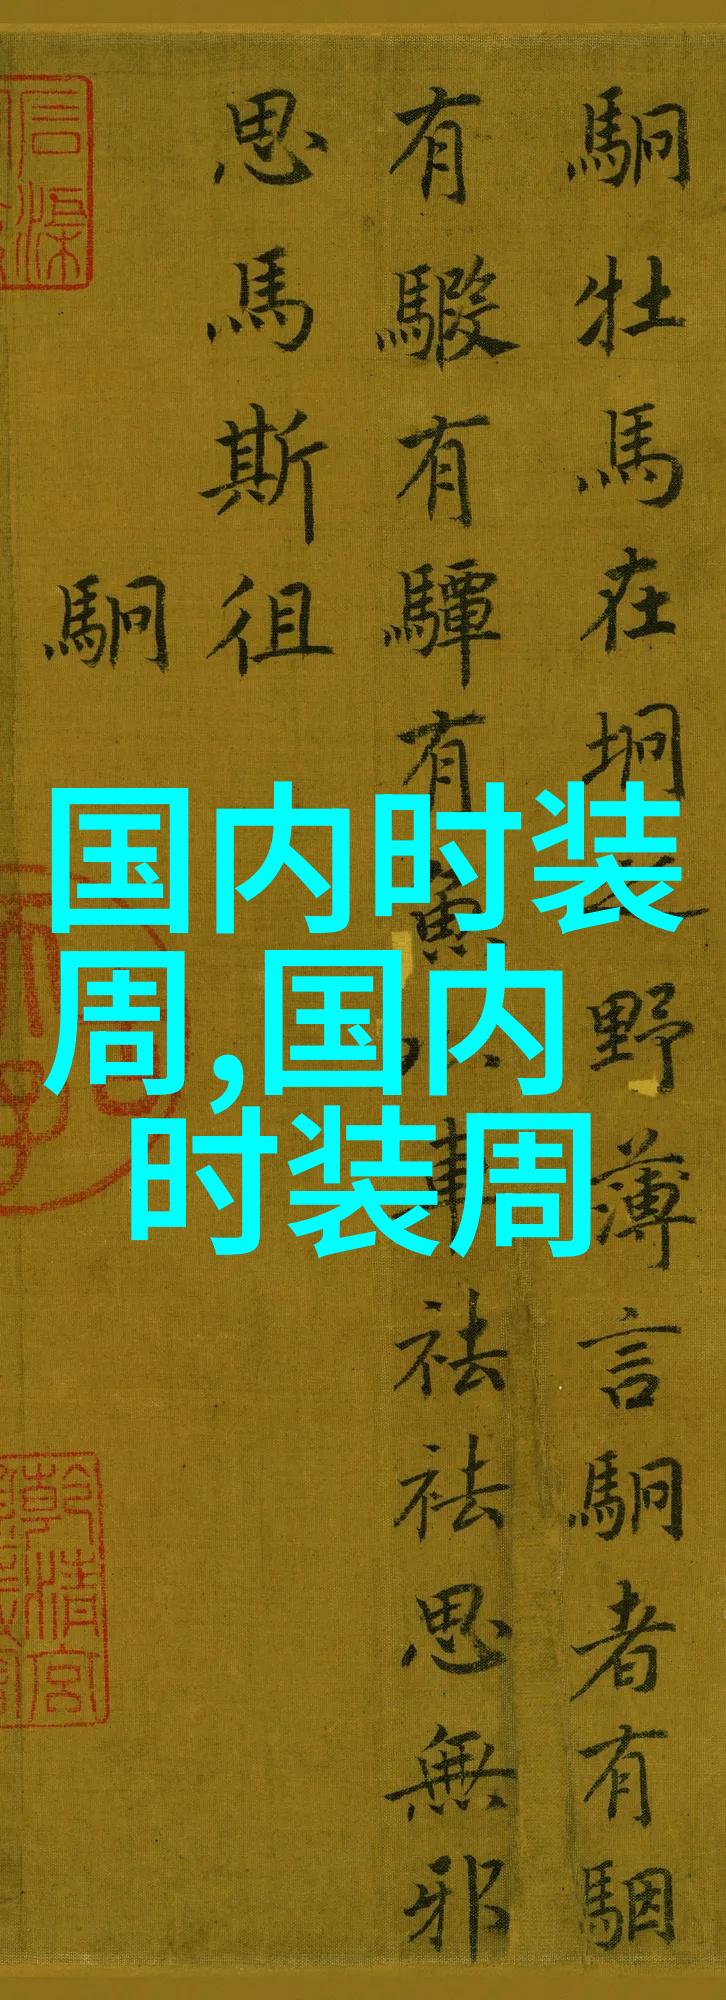 駉牡馬在坰之野薄言駉者有駰
有騢有驔有魚車祛祛思無邪
思馬斯徂
駉
国内时装
周,国内
时装周
乾清宮